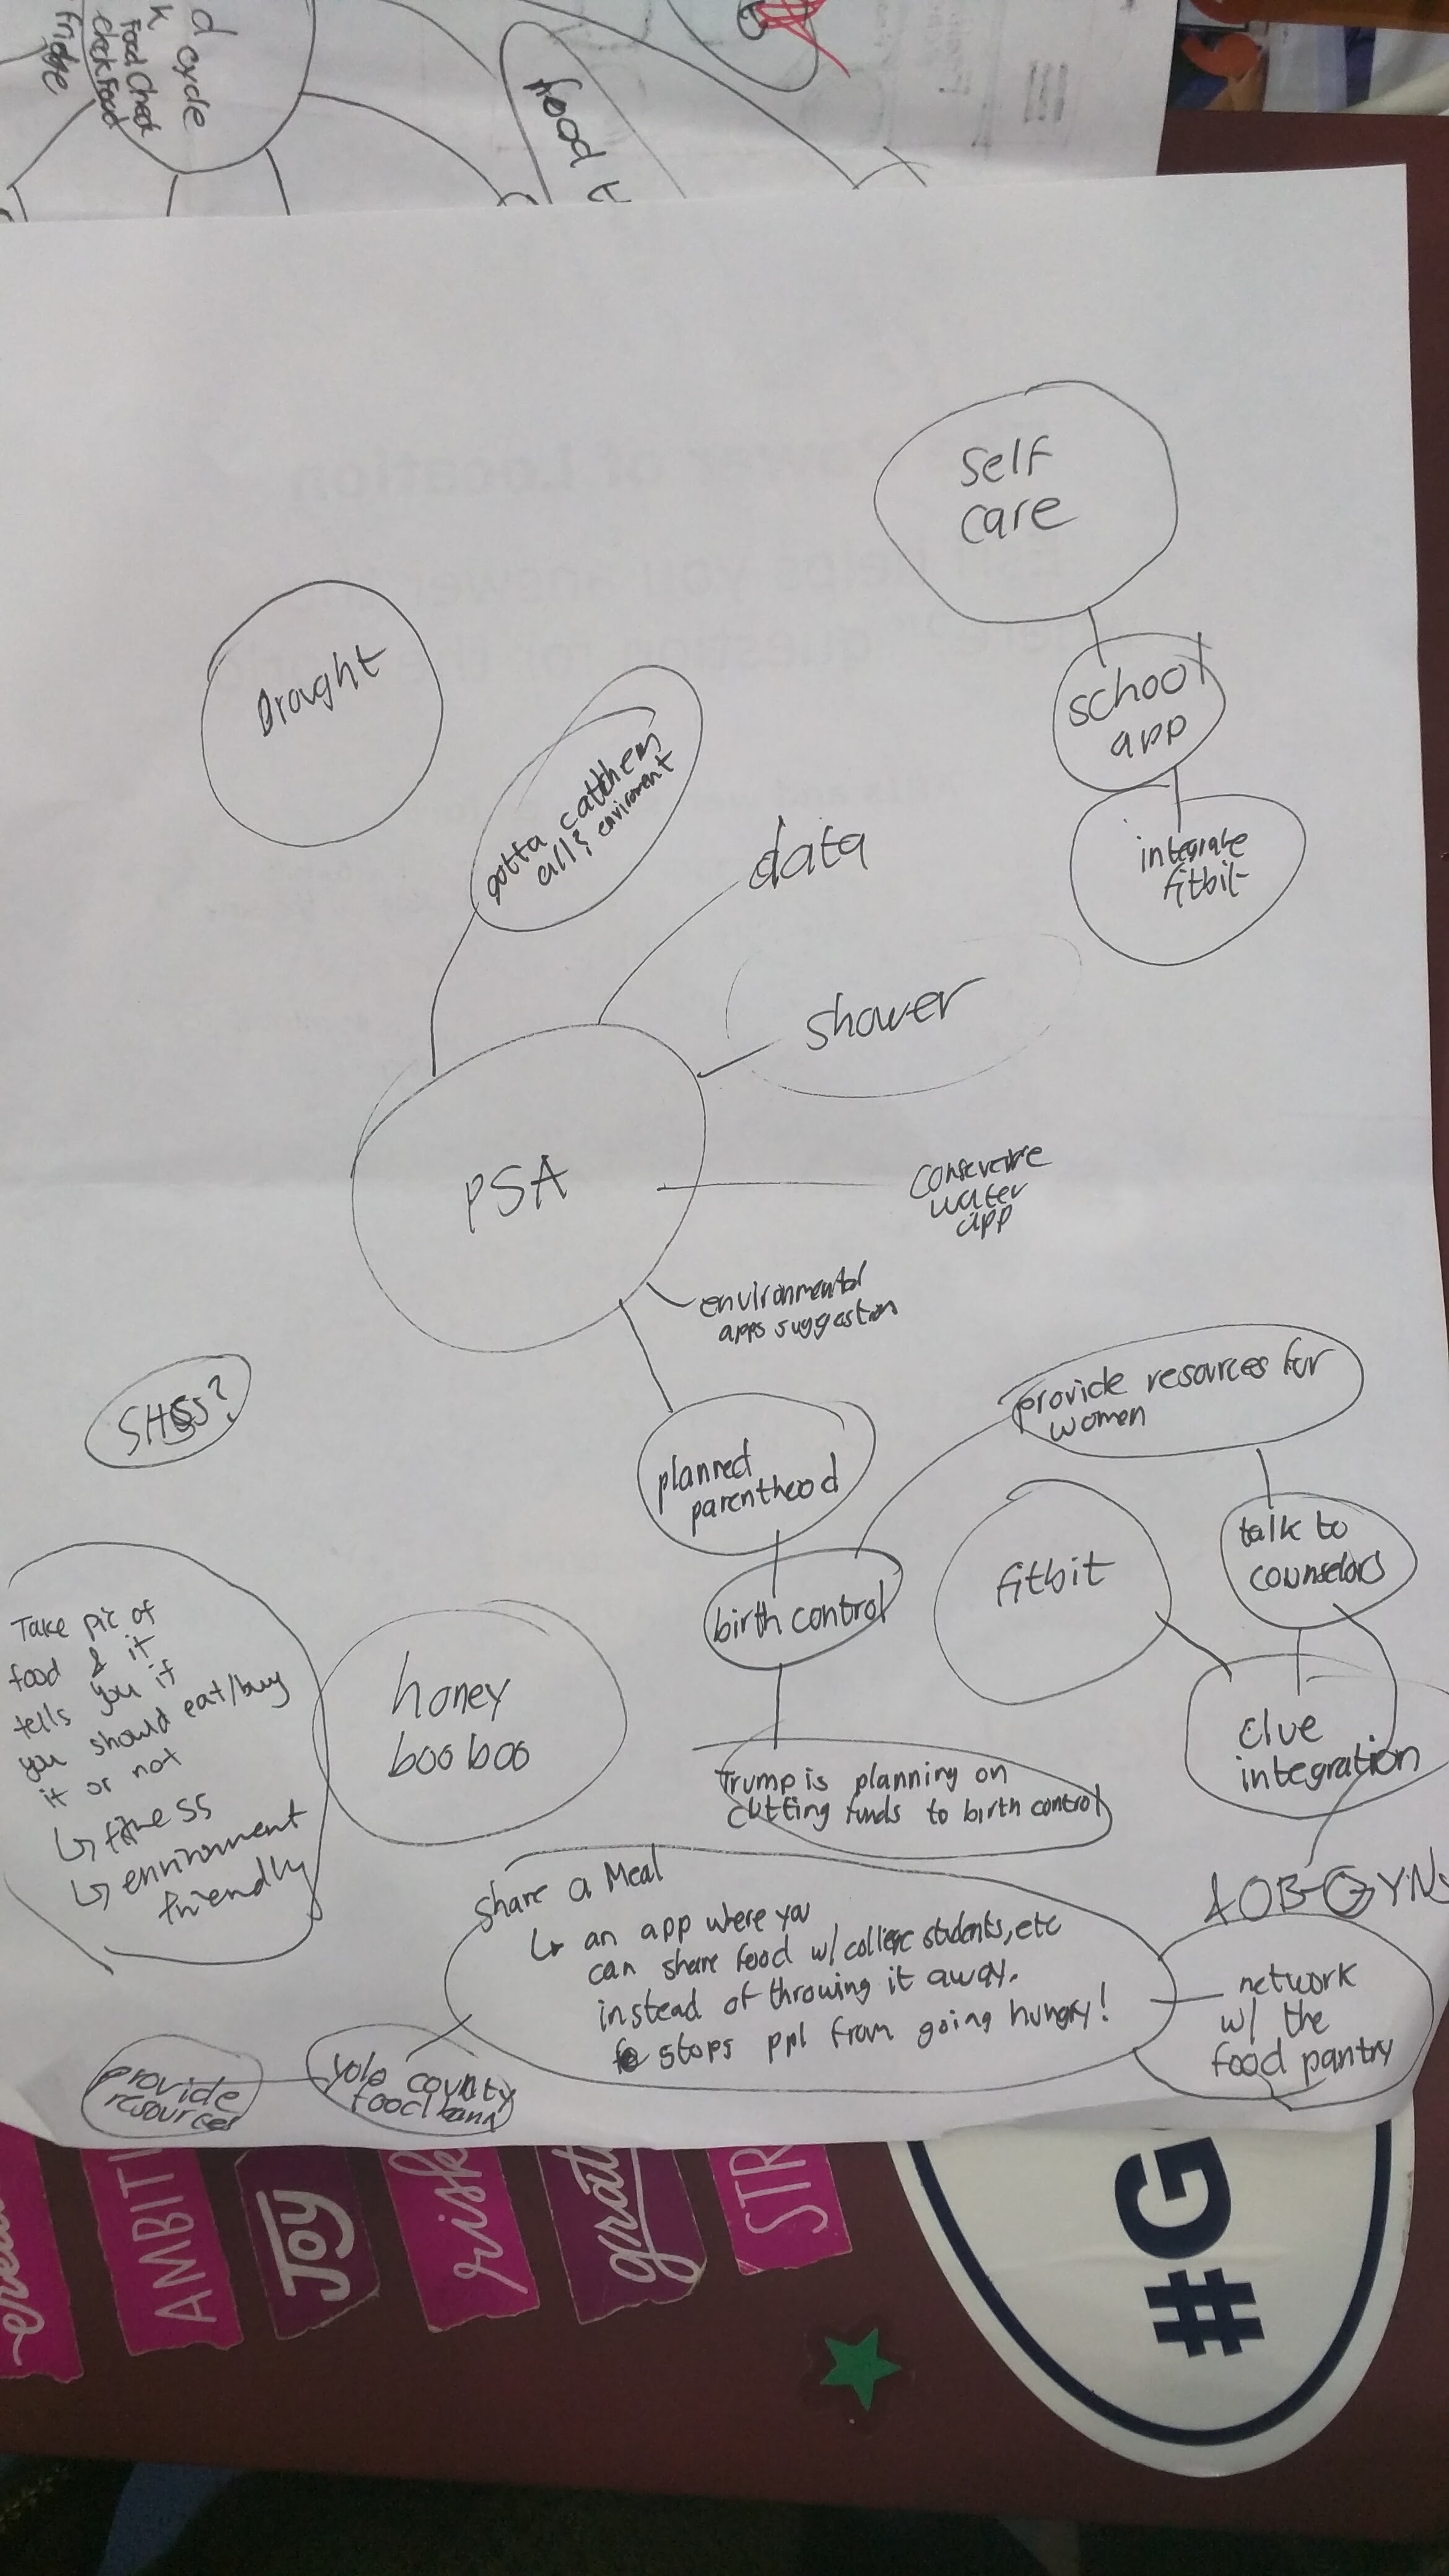 d cycle
k
Food Check
check food
fridge
food t
self
care
Drought
school
app
gotta catthem
all & enviroment
integrate
fitbit
data
shower
PSA
water
app
environmental
apps suggestion
provide resources for
women
planned
parenthood
fitbit
talk to
counselors
birth control
Take pic of
food & it
tells you if
you should eat/buy
it or not
↳ fitness
↳ environment
friendly
honey
boo boo
clue
integration
Trump is planning on
cutting funds to birth control
& OB-GYNs
Share a Meal
↳ an app where you
can share food w/ college students, etc
instead of throwing it away.
stops ppl from going hungry!
network
w/ the
food pantry
yolo county
food bank
provide
resources
AMBITI
Joy
risk
grati
STR
#G